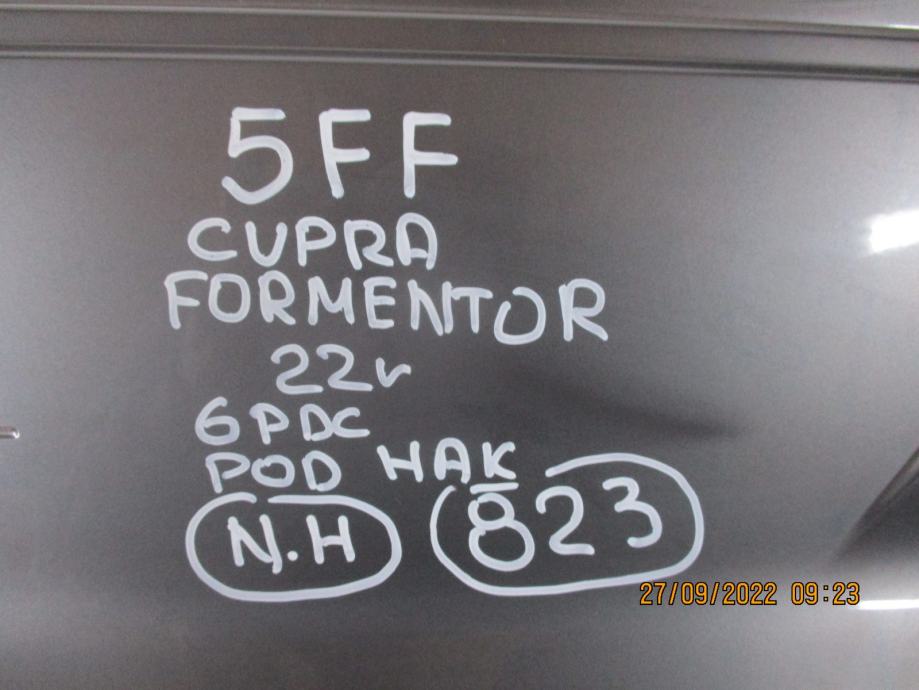 5FF
CUPRA
FORMENTOR
22r
6PDC
POD HAK
N.H 823
27/09/2022 09:23